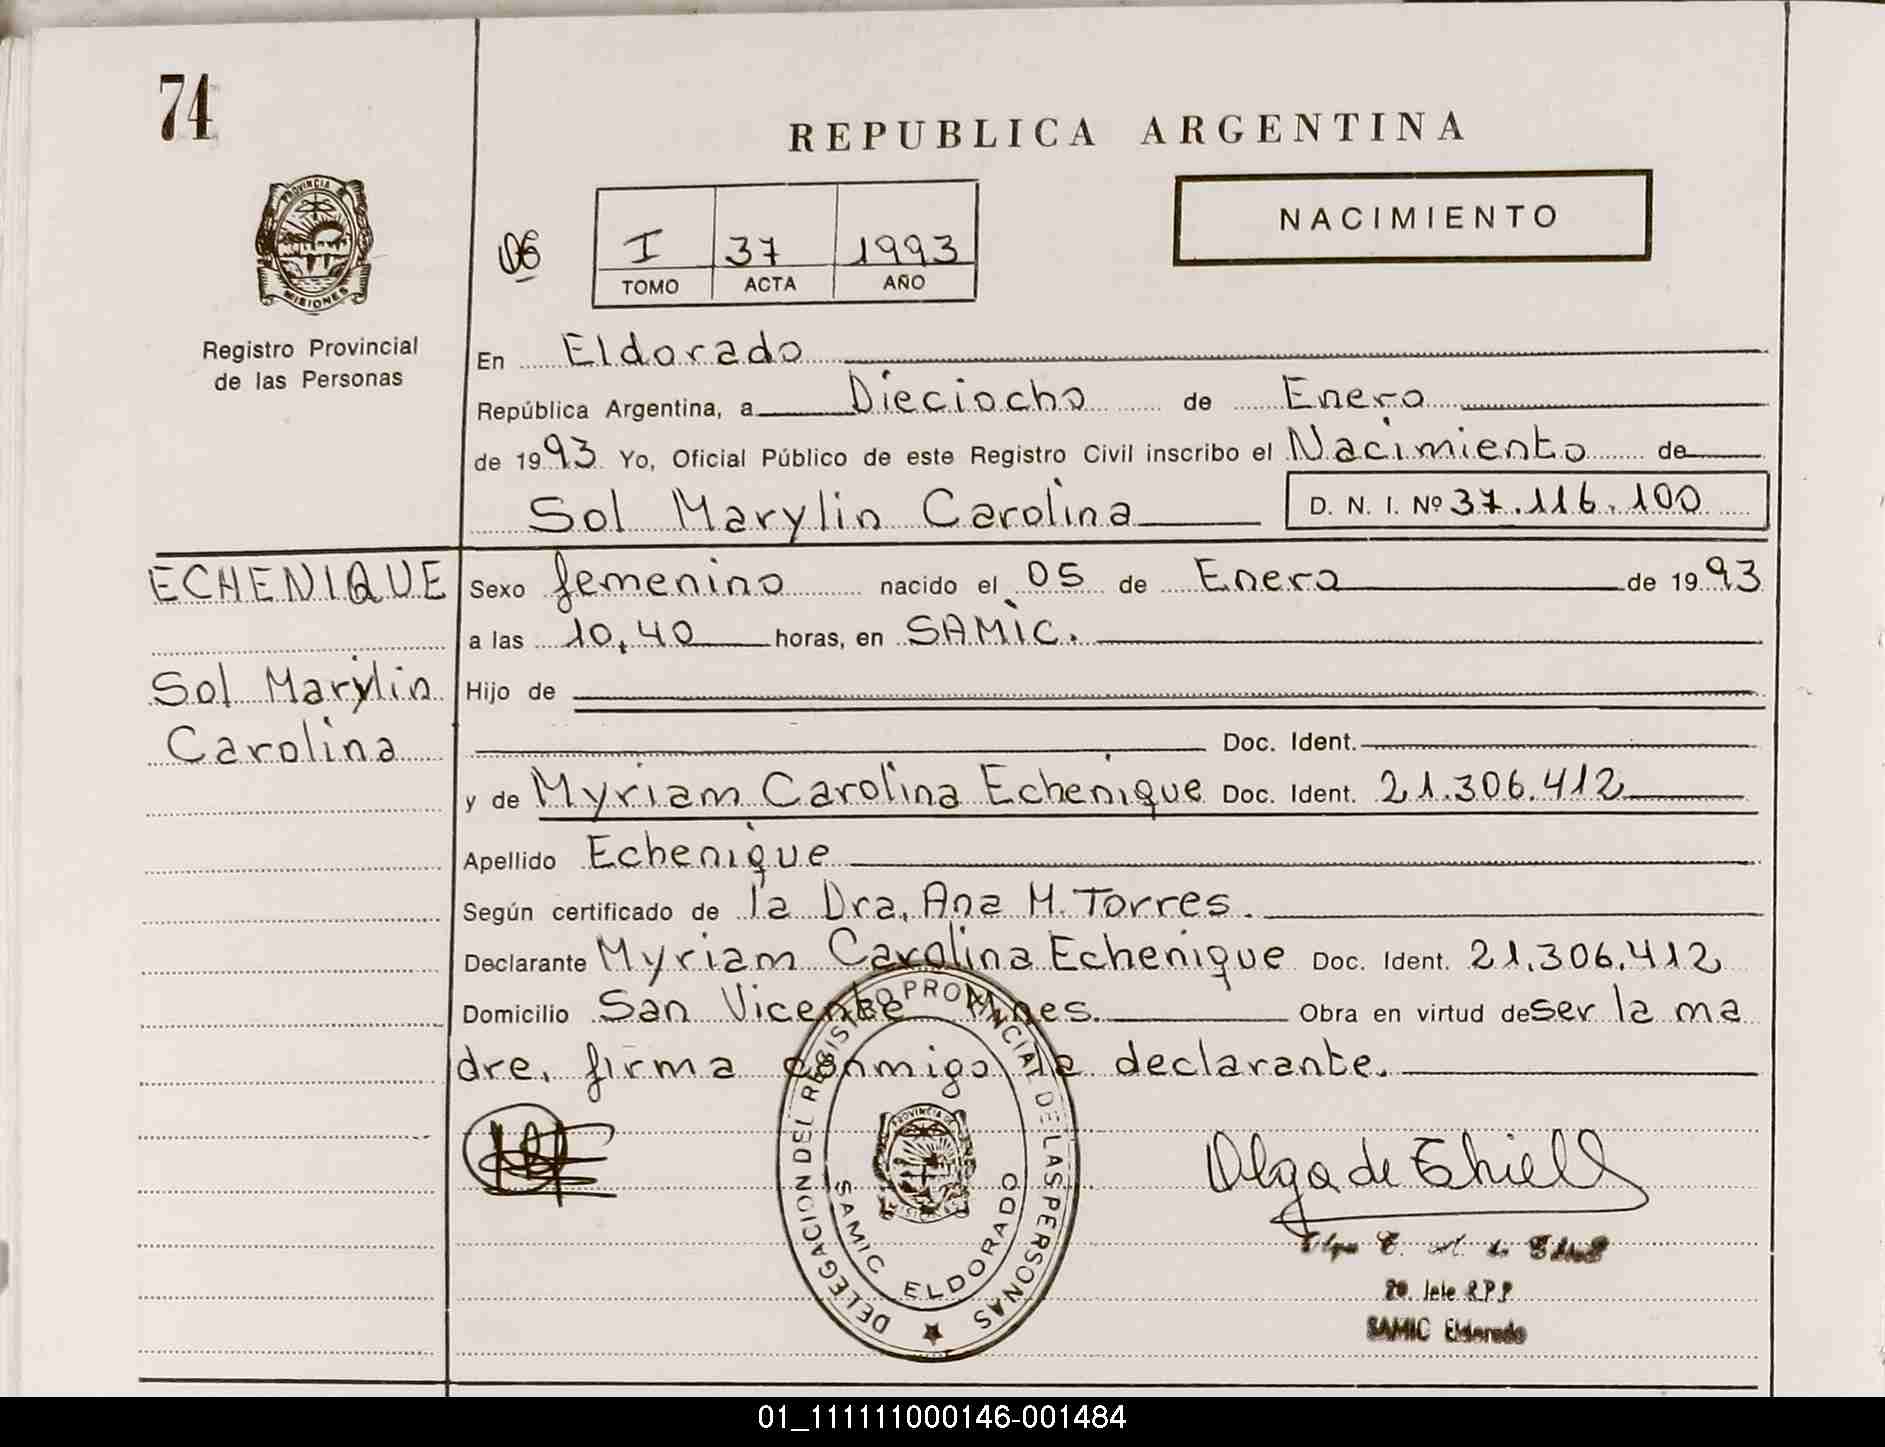 74
REPUBLICA ARGENTINA
PROVINCIA DE
MISIONES
Registro Provincial
de las Personas
06
I 37 1993
TOMO ACTA AÑO
NACIMIENTO
En Eldorado
República Argentina, a Dieciocho de Enero
de 1993 Yo, Oficial Público de este Registro Civil inscribo el Nacimiento de
Sol Marylin Carolina D. N. I. Nº 37.116.100
ECHENIQUE
Sol Marylin
Carolina
Sexo femenino nacido el 05 de Enero de 1993
a las 10,40 horas, en SAMIC.
Hijo de
Doc. Ident.
y de Myriam Carolina Echenique Doc. Ident. 21.306.412
Apellido Echenique
Según certificado de la Dra. Ana M. Torres.
Declarante Myriam Carolina Echenique Doc. Ident. 21.306.412
Domicilio San Vicente Mnes. Obra en virtud de ser la ma
dre, firma conmigo la declarante.
DELEGACION DEL REGISTRO PROVINCIAL DE LAS PERSONAS
SAMIC ELDORADO
Olga de
Jefe R.P.P
SAMIC Eldorado
01_111111000146-001484